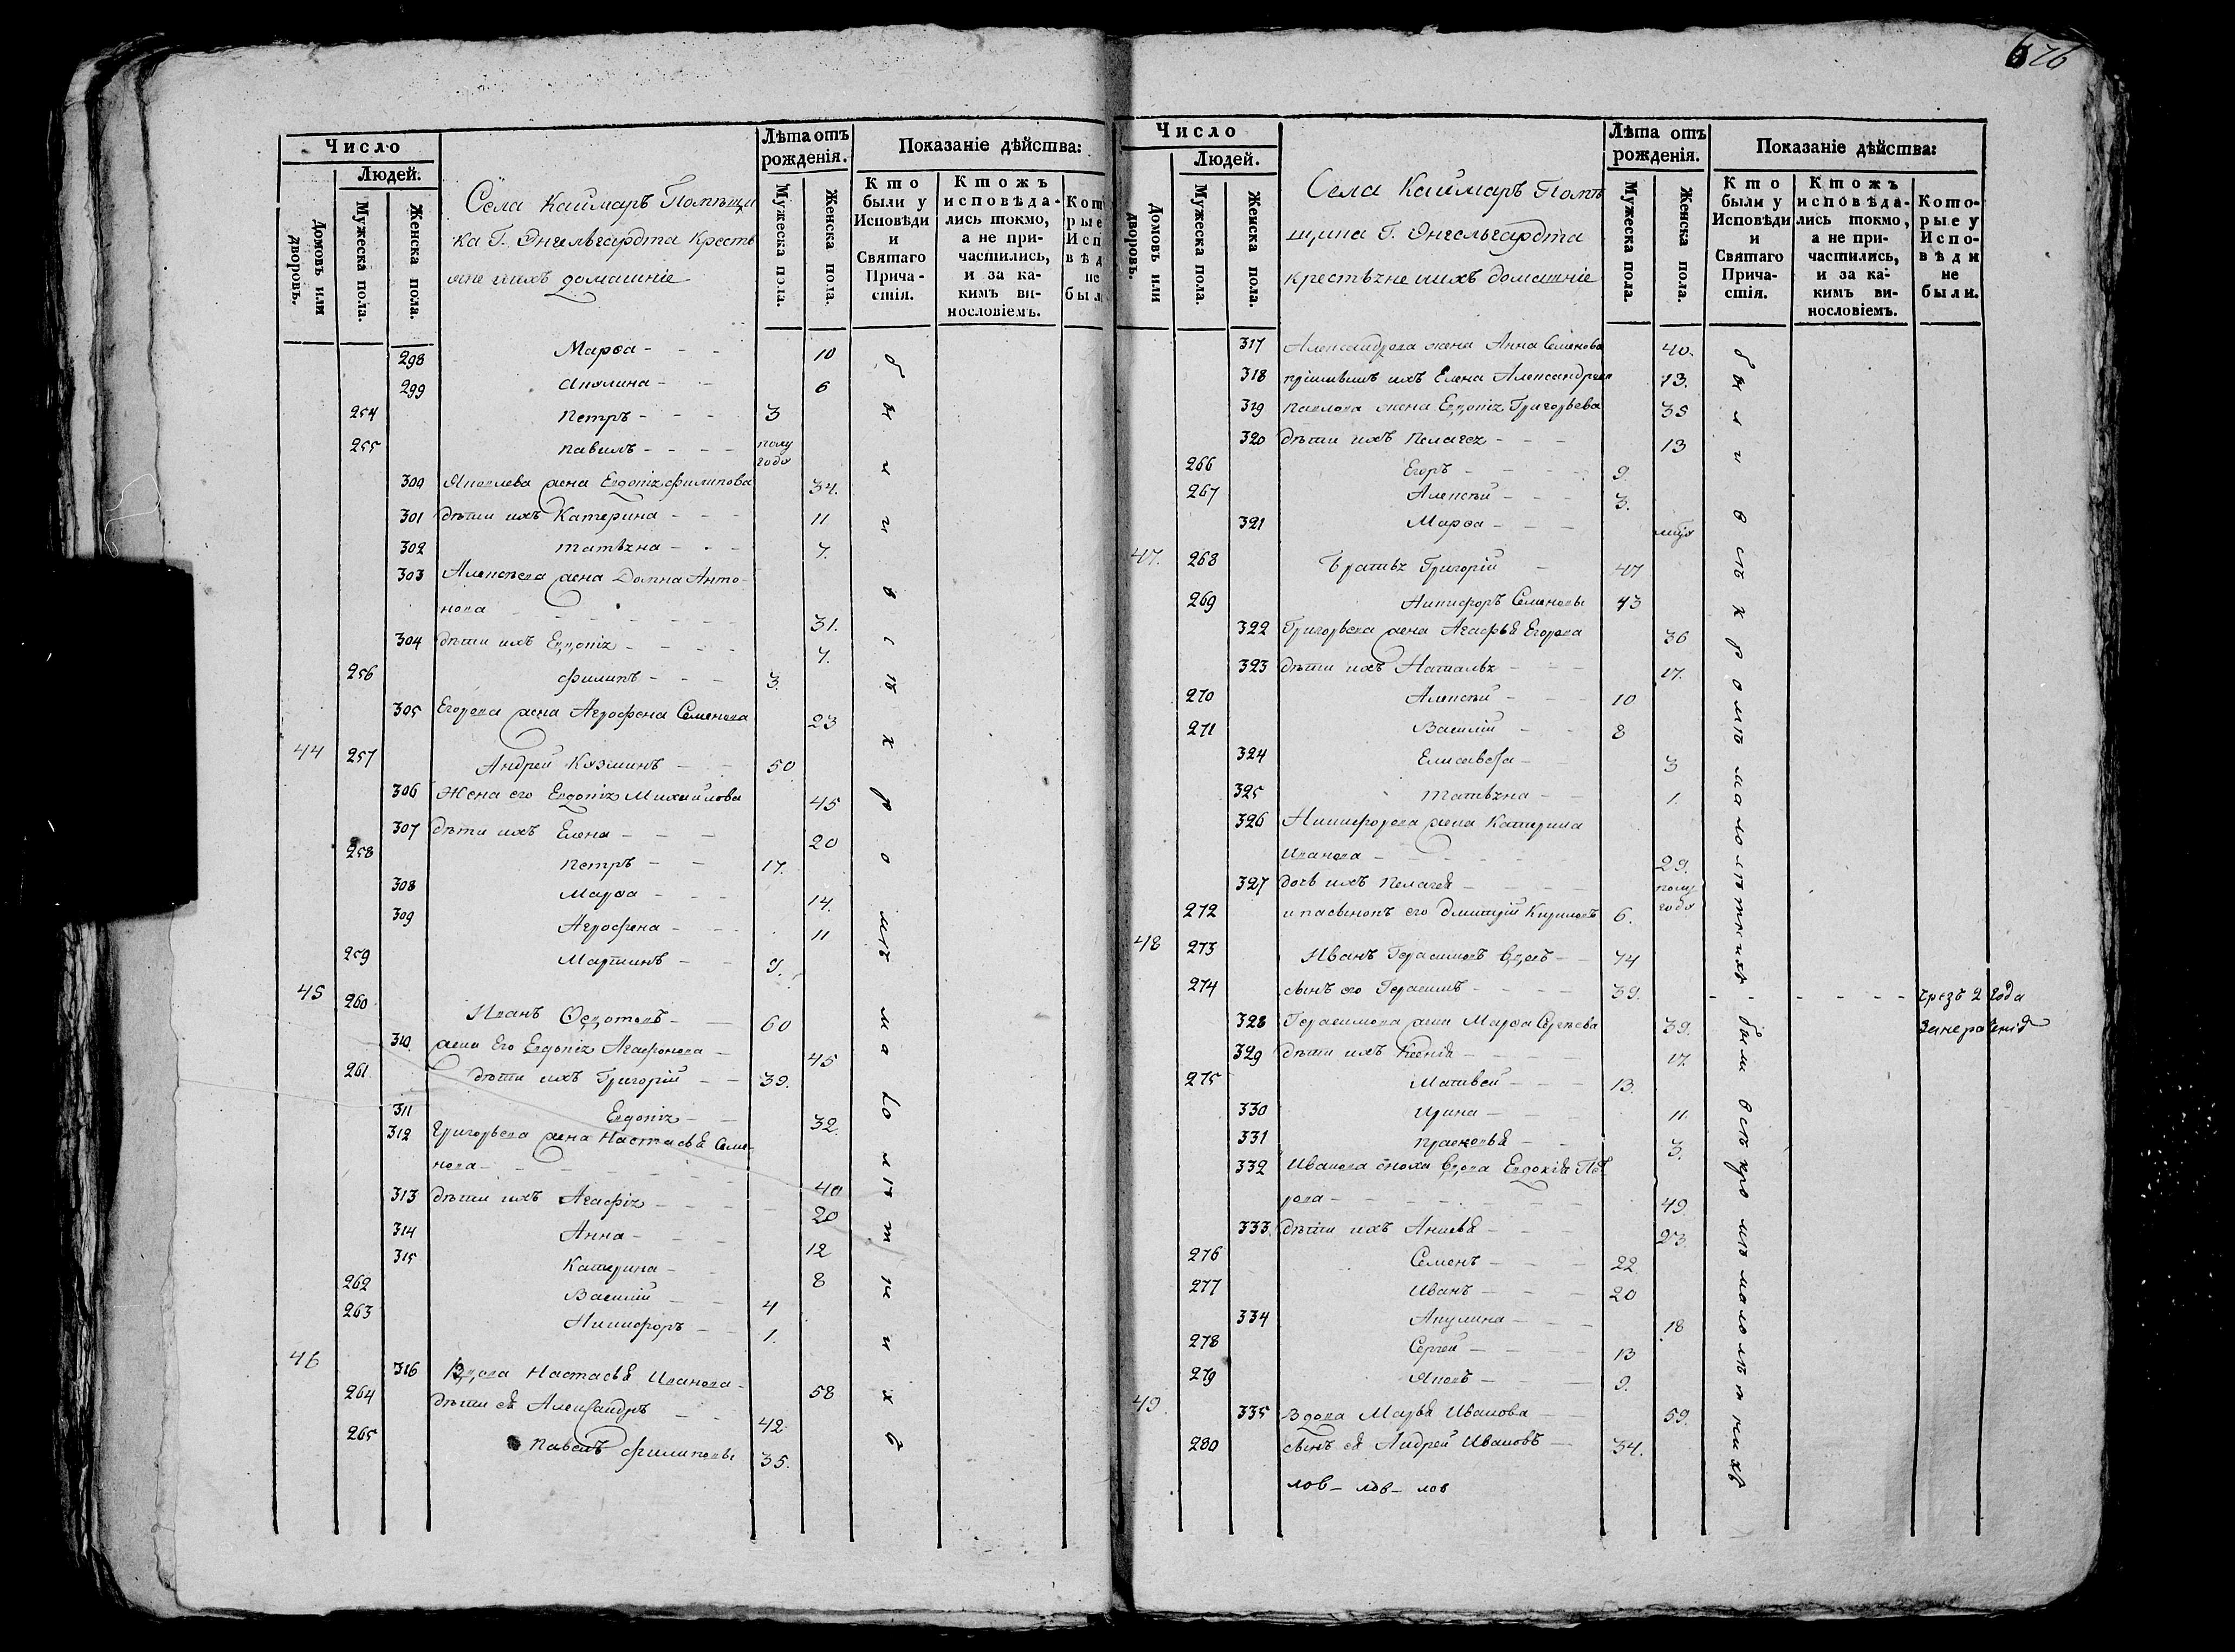 626
Число
Людей.
Домовъ или дворовъ.
Мужеска пола.
Женска пола.
Села Каймаръ Помѣщи
ка Г. Энгельгардта Кресть
яне и ихъ домашніе
Лѣта отъ рожденія.
Мужеска пола.
Женска пола.
Показаніе дѣйства:
Кто были у Исповѣди и Святаго Причастія.
Ктожъ исповѣдались токмо, а не причастились, и за какимъ винословіемъ.
298 Марѳа - - - 10
299 Акулина - - - 6
254 Петръ - - - 3
255 Павилъ - - - - полу года
300 Яковлева жена Евдокія Филипова 34.
301 дѣти ихъ Катерина - - - 11
302 Татьяна - - - 7.
303 Алексѣева жена Домна Анто-
нова - - - - - 31.
304 дѣти ихъ Евдокія - - - - 7.
256 Филипъ - - - 3.
305 Егорова жена Агрофена Семенова 23
44 257 Андрей Козминъ - - 50
306 Жена его Евдокія Михайлова 45
307 дѣти ихъ Елена - - - 20
258 Петръ - - 17.
308 Марѳа - - - 14.
309 Агрофена - - - 11
259 Мартинъ - - 9.
45 260 Иванъ Ѳедотовъ - - 60
310. жена Его Евдокія Агафонова - 45
261 дѣти ихъ Григорій - - 39.
311 Евдокія - - 32.
312 Григорьева жена Настасья Семе-
нова - - - - - 40
313 дѣти ихъ Агафія - - - - 20
314 Анна - - - 12
315 Катерина - - 8
262 Василій - - 4
263 Никифоръ - - 1.
46 316 Вдова Настасья Иванова - 58
264 дѣти ея Александръ - - 42
265 Павелъ Филиповы 35.
были всѣ кромѣ малолѣтнихъ
Число
Людей.
Домовъ или дворовъ.
Мужеска пола.
Женска пола.
Села Каймаръ Помѣ
щика Г. Энгельгардта
крестьяне и ихъ домашніе
Лѣта отъ рожденія.
Мужеска пола.
Женска пола.
Показаніе дѣйства:
Кто были у Исповѣди и Святаго Причастія.
Ктожъ исповѣдались токмо, а не причастились, и за какимъ винословіемъ.
Которые у Исповѣди не были.
317 Александрова жена Анна Семенова 40.
318 ихъ Елена Александрова 13.
319 Павлова жена Евдокія Григорьева 35
320 дѣти ихъ Пелагея - - - 13
266 Егоръ - - - - 9.
267 Алексѣй - - - 3.
321 Марѳа - - -
47. 268 Братья Григорій - 47
269 Никифоръ Семеновы 43
322 Григорьева жена Агафья Егорова 36
323 дѣти ихъ Наталья - - - 17.
270 Алексѣй - - - 10
271 Василій - - 8
324 Елисавета - - 3
325 Татьяна - - 1.
326 Никифорова жена Катерина
Иванова - - - - - 29.
327 дочь ихъ Пелагея - - - - полу года
272 и пасынокъ его Дмитрій Кириловъ 6.
48 273 Иванъ Герасимовъ вдовъ - - 74
274 сынъ его Герасимъ - - - - 39. - - - - - - чрезъ 2 года
328 Герасимова жена Марѳа Сергѣева 39.
329 дѣти ихъ Ксенія - - - - 17.
275 Матвей - - - 13.
330 Ирина - - - 11.
331 Прасковья - - 3.
332 Иванова сноха вдова Евдокія Пет
рова - - - - - - 49.
333. дѣти ихъ Анисья - - - 23.
276 Семенъ - - - 22.
277 Иванъ - - - 20
334 Акулина - - - 18
278 Сергей - - - - 13
279 Яковъ - - - 9.
49. 335 Вдова Марья Иванова - - 59.
280 сынъ ея Андрей Ивановъ - 34.
лов - лов - лов
были всѣ кромѣ малолѣтнихъ
были всѣ кромѣ малолѣтнихъ